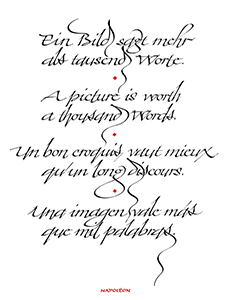 Ein Bild sagt mehr
als tausend Worte.
A picture is worth
a thousand Words.
Un bon croquis vaut mieux
qu'un long discours.
Una imagen vale más
que mil palabras.
NAPOLEÓN